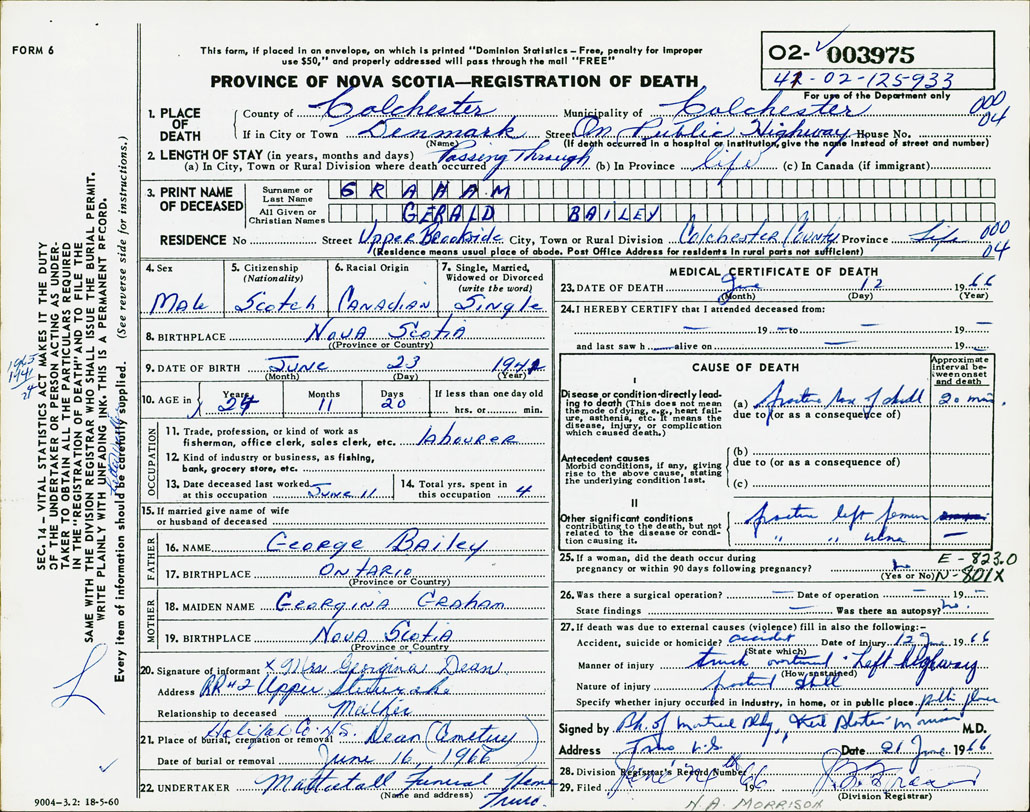 FORM 6
This form, if placed in an envelope, on which is printed "Dominion Statistics – Free, penalty for improper
use $50," and properly addressed will pass through the mail "FREE"
PROVINCE OF NOVA SCOTIA—REGISTRATION OF DEATH
02- 003975
41-02-125-933
For use of the Department only
1. PLACE OF DEATH
County of Colchester Municipality of Colchester 000 04
If in City or Town Denmark Street On Public Highway House No.
(Name) (If death occurred in a hospital or institution, give the name instead of street and number)
2. LENGTH OF STAY (in years, months and days)
(a) In City, Town or Rural Division where death occurred Passing Through (b) In Province life (c) In Canada (if immigrant)
3. PRINT NAME OF DECEASED
Surname or Last Name GRAHAM
All Given or Christian Names GERALD BAILEY
RESIDENCE No Street Upper Brookside City, Town or Rural Division Colchester County Province Life 000 04
(Residence means usual place of abode. Post Office Address for residents in rural parts not sufficient)
4. Sex Male
5. Citizenship (Nationality) Scotch
6. Racial Origin Canadian
7. Single, Married, Widowed or Divorced (write the word) Single
8. BIRTHPLACE Nova Scotia
(Province or Country)
9. DATE OF BIRTH June 23 1941
(Month) (Day) (Year)
10. AGE in Years 24 Months 11 Days 20 If less than one day old hrs. or min.
OCCUPATION
11. Trade, profession, or kind of work as
fisherman, office clerk, sales clerk, etc. labourer
12. Kind of industry or business, as fishing,
bank, grocery store, etc.
13. Date deceased last worked at this occupation June 11
14. Total yrs. spent in this occupation 4
15. If married give name of wife
or husband of deceased
FATHER
16. NAME George Bailey
17. BIRTHPLACE Ontario
(Province or Country)
MOTHER
18. MAIDEN NAME Georgina Graham
19. BIRTHPLACE Nova Scotia
(Province or Country)
20. Signature of informant x Mrs Georgina Dean
Address RR#2 Upper
Relationship to deceased Mother
Halifax Co. N.S.
21. Place of burial, cremation or removal Dean (Cemetery)
Date of burial or removal June 16, 1966
22. UNDERTAKER Mattatall Funeral Home
(Name and address) Truro.
MEDICAL CERTIFICATE OF DEATH
23. DATE OF DEATH June 12 1966
(Month) (Day) (Year)
24. I HEREBY CERTIFY that I attended deceased from:
— 19 — to — 19 —
and last saw h alive on — 19 —
CAUSE OF DEATH
Approximate interval between onset and death
I
Disease or condition directly leading to death (This does not mean the mode of dying, e.g., heart failure, asthenia, etc. It means the disease, injury, or complication which caused death.)
(a) fracture base of skull 20 min.
due to (or as a consequence of)
Antecedent causes
Morbid conditions, if any, giving rise to the above cause, stating the underlying condition last.
(b)
due to (or as a consequence of)
(c)
II
Other significant conditions
contributing to the death, but not related to the disease or condition causing it.
fracture left femur
" " ulna —
25. If a woman, did the death occur during
pregnancy or within 90 days following pregnancy? no
(Yes or No)
E-823.0
N-801X
26. Was there a surgical operation? — Date of operation — 19 —
State findings — Was there an autopsy? no.
27. If death was due to external causes (violence) fill in also the following:–
Accident, suicide or homicide? accident Date of injury 12 June 1966
(State which)
Manner of injury truck overturned - left highway
(How sustained)
Nature of injury fractured skull
Specify whether injury occurred in industry, in home, or in public place. public place
Signed by M.D.
Address Truro N.S. Date 21 June 1966
28. Division Registrar's Record Number
29. Filed June 24th 1966
(Division Registrar)
N.A. MORRISON
9004-3.2: 18-5-60
SEC. 14 – VITAL STATISTICS ACT MAKES IT THE DUTY
OF THE UNDERTAKER OR PERSON ACTING AS UNDER-
TAKER TO OBTAIN ALL THE PARTICULARS REQUIRED
IN THE "REGISTRATION OF DEATH" AND TO FILE THE
SAME WITH THE DIVISION REGISTRAR WHO SHALL ISSUE THE BURIAL PERMIT.
WRITE PLAINLY WITH UNFADING INK. THIS IS A PERMANENT RECORD.
Every item of information should be carefully supplied. (See reverse side for instructions.)
1965
1941
24